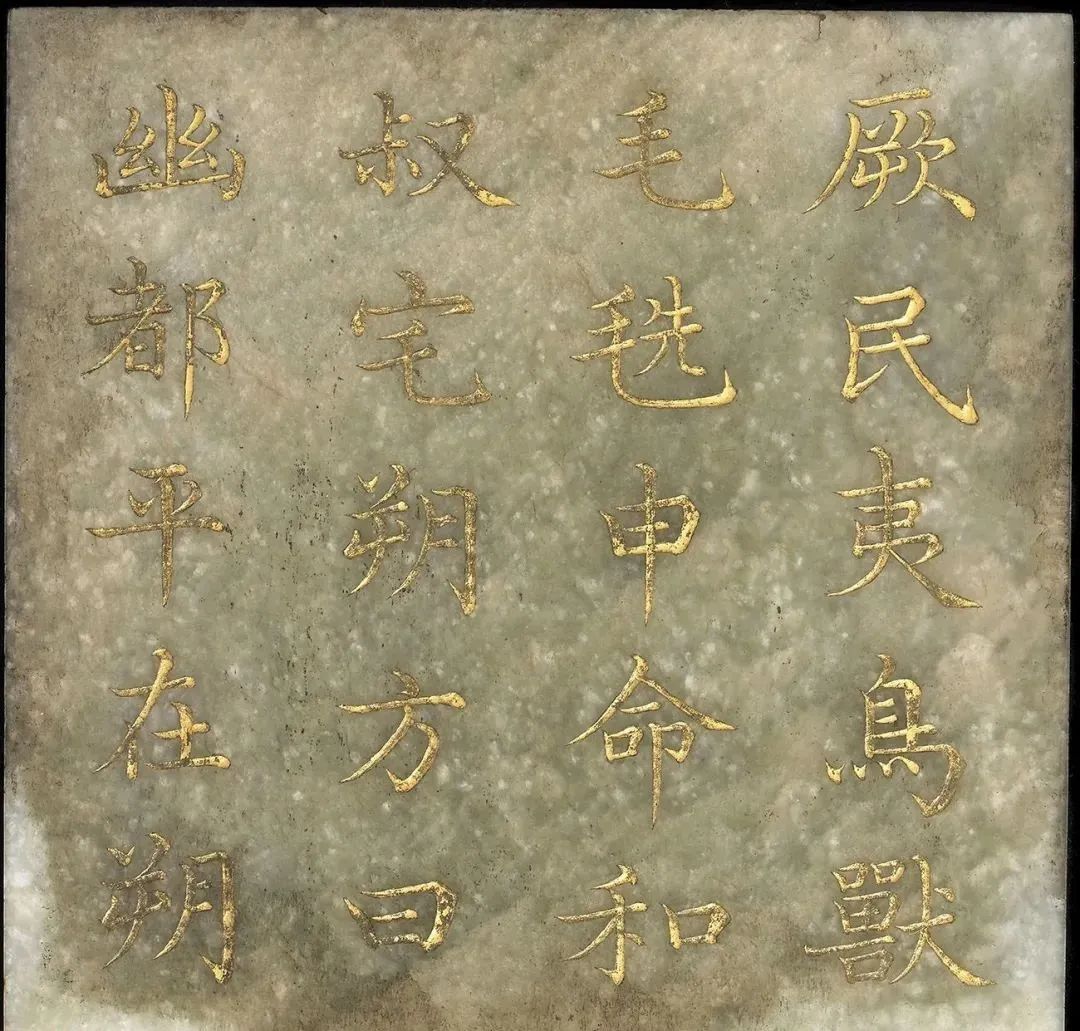 厥民夷鳥獸
毛毨申命和
叔宅朔方曰
幽都平在朔